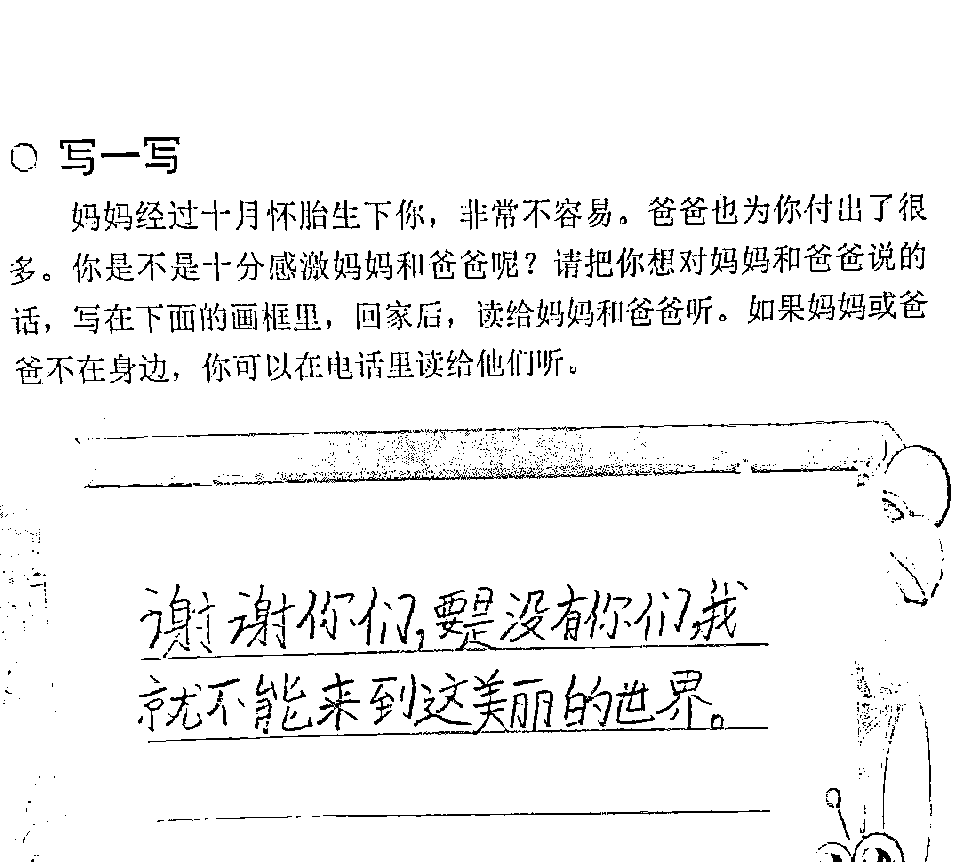 ○ 写一写
妈妈经过十月怀胎生下你，非常不容易。爸爸也为你付出了很
多。你是不是十分感激妈妈和爸爸呢？请把你想对妈妈和爸爸说的
话，写在下面的画框里，回家后，读给妈妈和爸爸听。如果妈妈或爸
爸不在身边，你可以在电话里读给他们听。
谢谢你们,要是没有你们,我
就不能来到这美丽的世界。